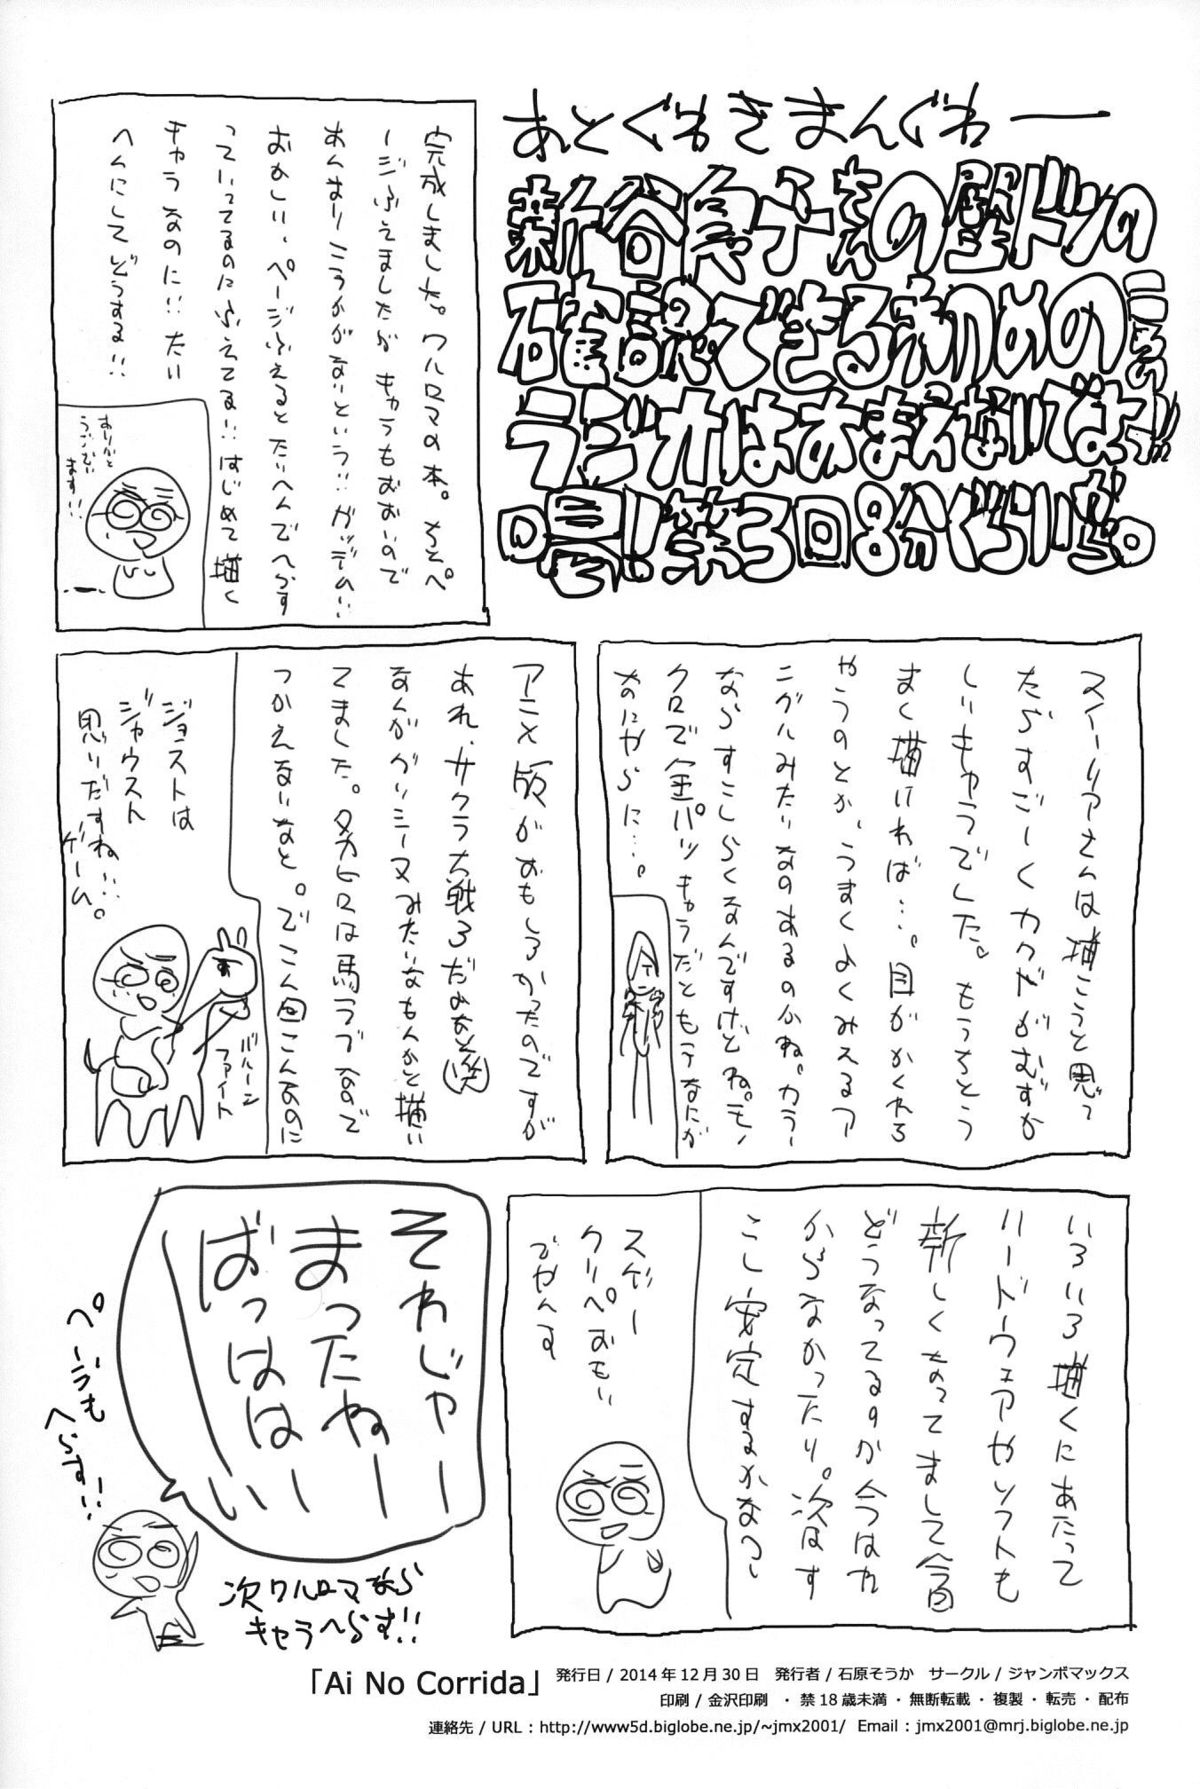 あとぐわきまんぐわー
新谷良子さんの壁ドンの
確認できる初めの
ラジオはおまえないでよっ!!
喝!!第3回8分ぐらいから。
完成しました。ワルロマの本。ちとペ
ージふえましたが キャラもおおいので
あんまりこうかがないという!! ガッデム!!
おかしい、ページふえるとたいへんでへらす
っていってるのにふえてる!! はじめて描く
キャラなのに!! たい
へんにしてどうする!!
ありがと
うござい
ます!!
スイーリアさんは描こうと思っ
たらすごーくカクドがむずか
しいキャラでした。もうちとう
まく描ければ…。目がかくれち
ゃうのとか、うまくよくみえるア
ングルみたいなのあるのかね。カラー
ならすこしらくなんですけどね。モノ
クロで金パツキャラだともうなにが
なにやらに…。
アニメ版がおもしろかったのですが
あれ、サクラ大戦3だよなと(笑)
なんかグリシーヌみたいなもんかと描い
てました。タカヒロは馬ラブなので
つかえないなと。でこん回こんなのに
ジョストは
ジャウスト
思いだすね…
ゲーム。
バルーン
ファイト
いろいろ描くにあたって
ハードウェアやソフトも
新しくなってまして今回
どうなってるのか今はわ
からなかったり。次はす
こし安定するかなっ
スゲー
クリペおもい
でやんす
それじゃー
まったねー
ばっはーい
ページも
へらす!!
次ワルロマなら
キャラへらす!!
「Ai No Corrida」 発行日 / 2014 年 12 月 30 日　発行者 / 石原そうか　サークル / ジャンボマックス
印刷 / 金沢印刷 ・ 禁 18 歳未満 ・ 無断転載 ・ 複製 ・ 転売 ・ 配布
連絡先 / URL : http://www5d.biglobe.ne.jp/~jmx2001/ Email : jmx2001@mrj.biglobe.ne.jp